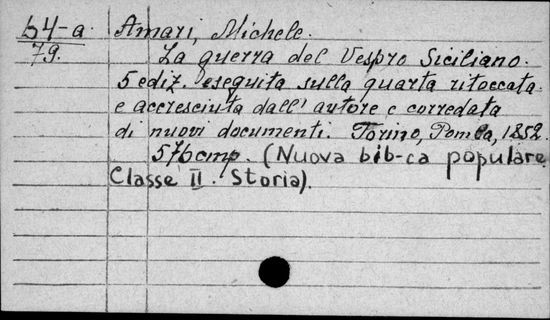 64-a
79.
Amari, Michele.
La guerra del Vespro Siciliano.
5 ediz. eseguita sulla quarta ritoccata
e accresciuta dall' autore e corredata
di nuovi documenti. Torino, Pomba, 1852.
576 cmp. (Nuova bib-ca populare.
Classe II. Storia).